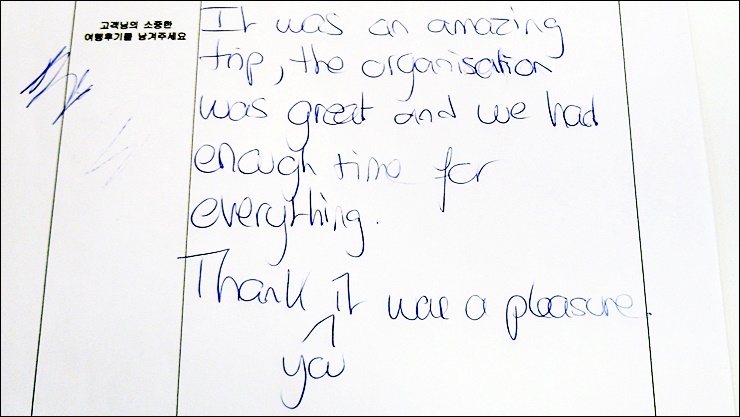 고객님의 소중한
여행후기를 남겨주세요
It was an amazing
trip, the organisation
was great and we had
enough time for
everything.
Thank it was a pleasure.
you